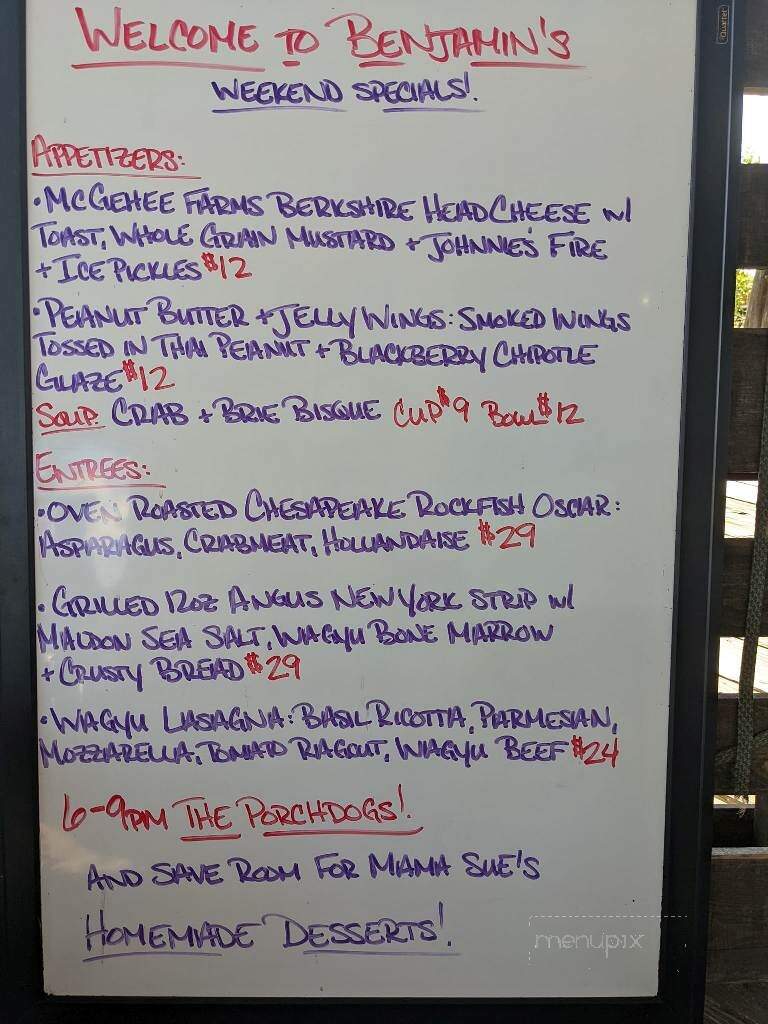 Quartet
WELCOME TO BENJAMIN'S
WEEKEND SPECIALS!
APPETIZERS:
• MCGEHEE FARMS BERKSHIRE HEADCHEESE W/
TOAST, WHOLE GRAIN MUSTARD + JOHNNIE'S FIRE
+ ICE PICKLES $12
• PEANUT BUTTER + JELLY WINGS: SMOKED WINGS
TOSSED IN THAI PEANUT + BLACKBERRY CHIPOTLE
GLAZE $12
SOUP: CRAB + BRIE BISQUE CUP $9 BOWL $12
ENTREES:
• OVEN ROASTED CHESAPEAKE ROCKFISH OSCAR:
ASPARAGUS, CRABMEAT, HOLLANDAISE $29
• GRILLED 12OZ ANGUS NEW YORK STRIP W/
MALDON SEA SALT, WAGYU BONE MARROW
+ CRUSTY BREAD $29
• WAGYU LASAGNA: BASIL RICOTTA, PARMESIAN,
MOZZARELLA, TOMATO RAGOUT, WAGYU BEEF $24
6-9PM THE PORCHDOGS!
AND SAVE ROOM FOR MAMA SUE'S
HOMEMADE DESSERTS!
menupix